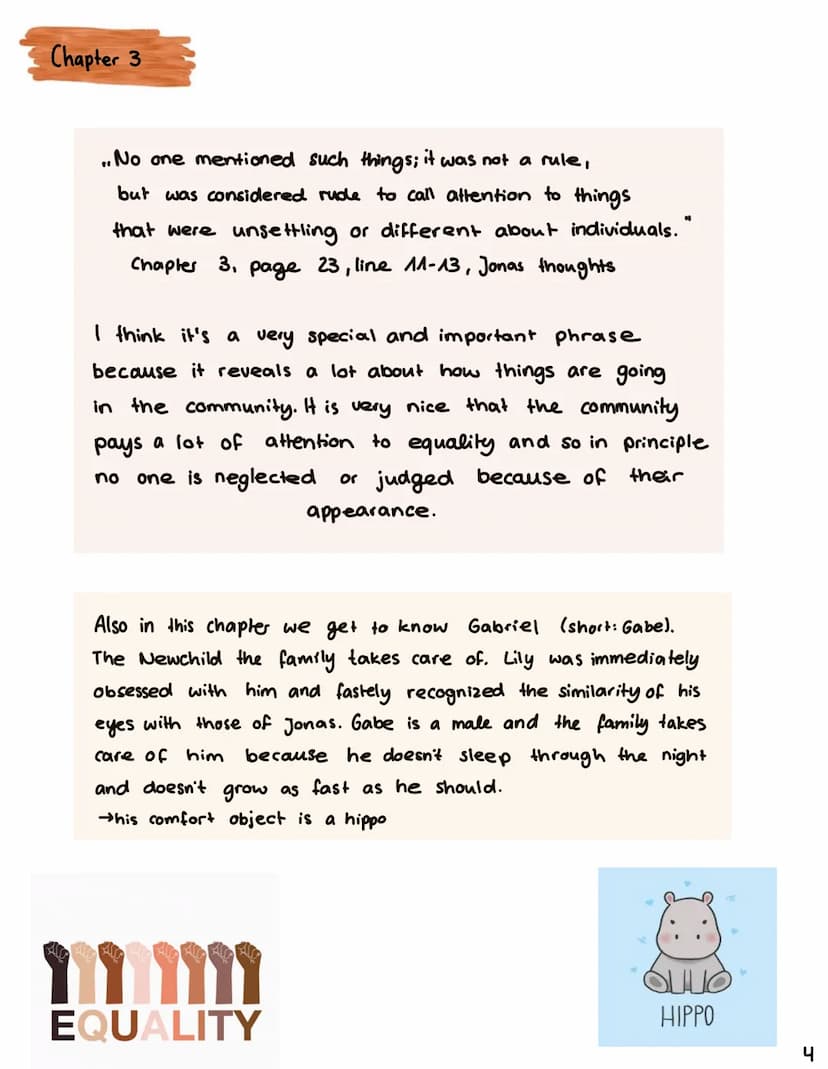 Chapter 3
„No one mentioned such things; it was not a rule,
but was considered rude to call attention to things
that were unsettling or different about individuals."
Chapter 3, page 23, line 11-13, Jonas thoughts
I think it's a very special and important phrase
because it reveals a lot about how things are going
in the community. It is very nice that the community
pays a lot of attention to equality and so in principle
no one is neglected or judged because of their
appearance.
Also in this chapter we get to know Gabriel (short: Gabe).
The Newchild the family takes care of. Lily was immediately
obsessed with him and fastely recognized the similarity of his
eyes with those of Jonas. Gabe is a male and the family takes
care of him because he doesn't sleep through the night
and doesn't grow as fast as he should.
→his comfort object is a hippo
EQUALITY
HIPPO
4